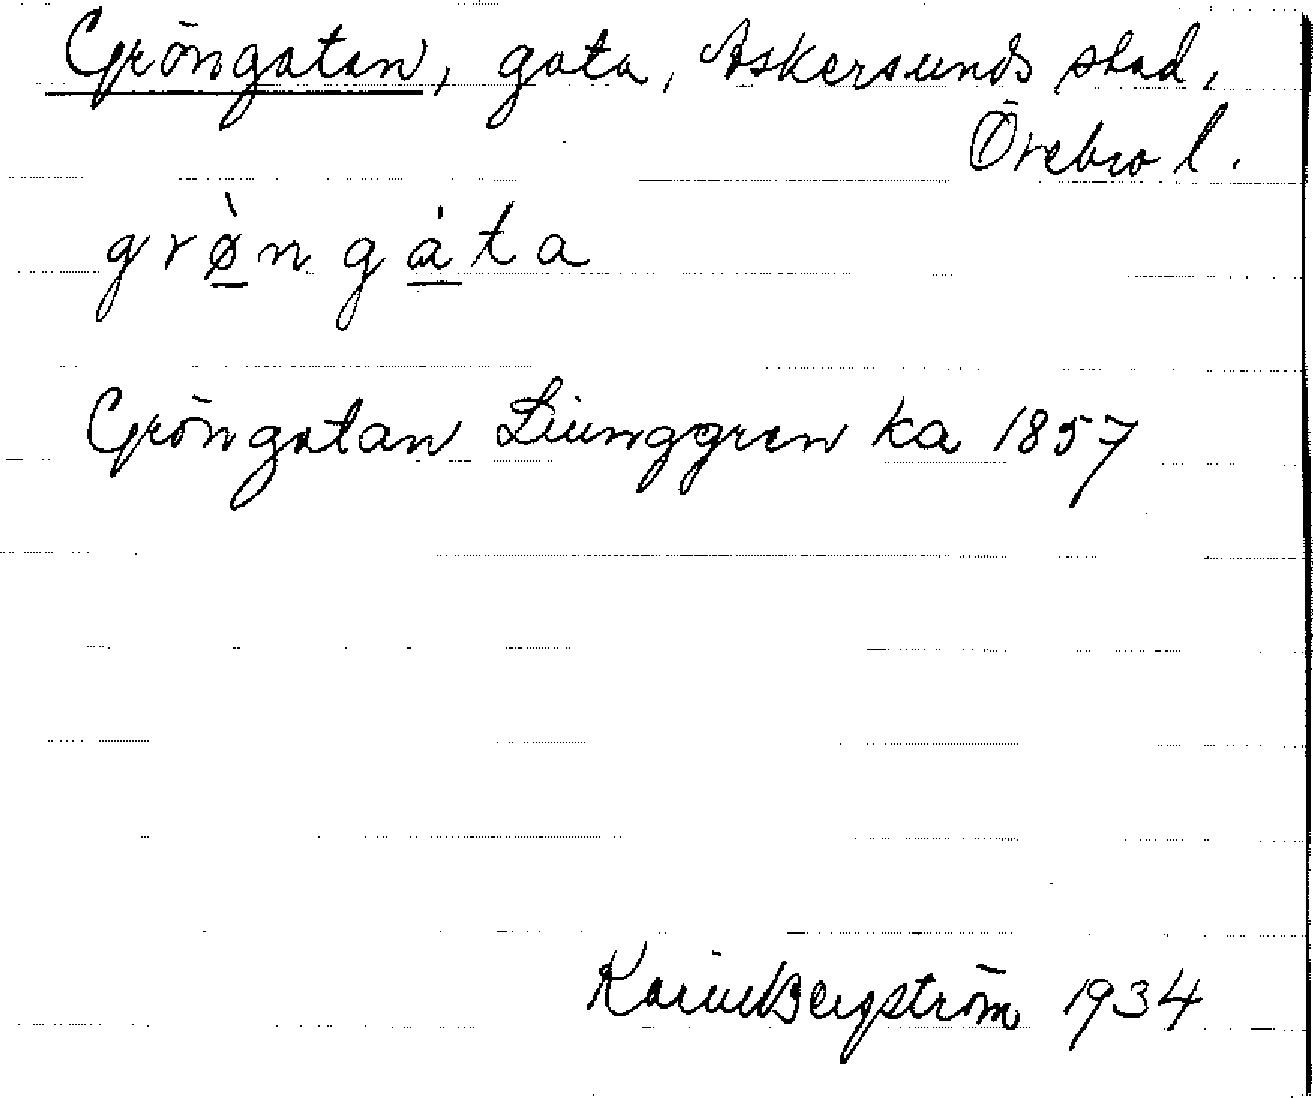 Gröngatan, gata, Askersunds stad,
Örebro l.
grø̀n gȧta
Gröngatan Liunggren ka 1857
Karin Bergström 1934